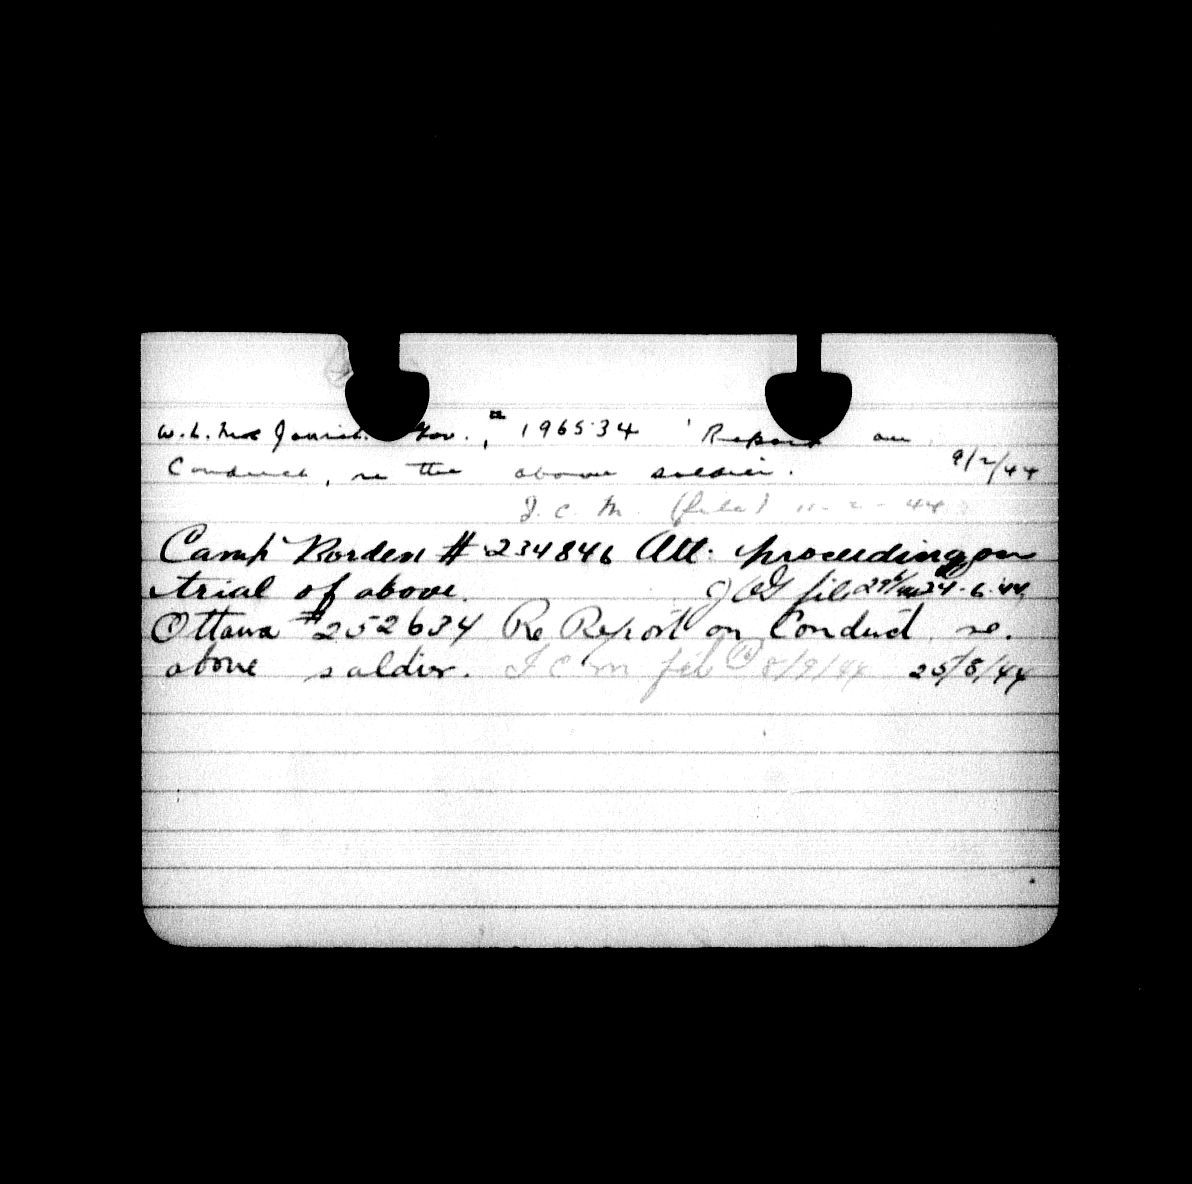 W. L. Gov., # 196534 Report on
Conduct, re the above soldier. 9/2/44
J. C. M. (file) 11-2-44
Camp Borden # 234846 Att. proceedings on
trial of above. JAG file 24.6.44
Ottawa #252634 Re Report on Conduct re.
above soldier. J C M file 8/9/44 25/8/44